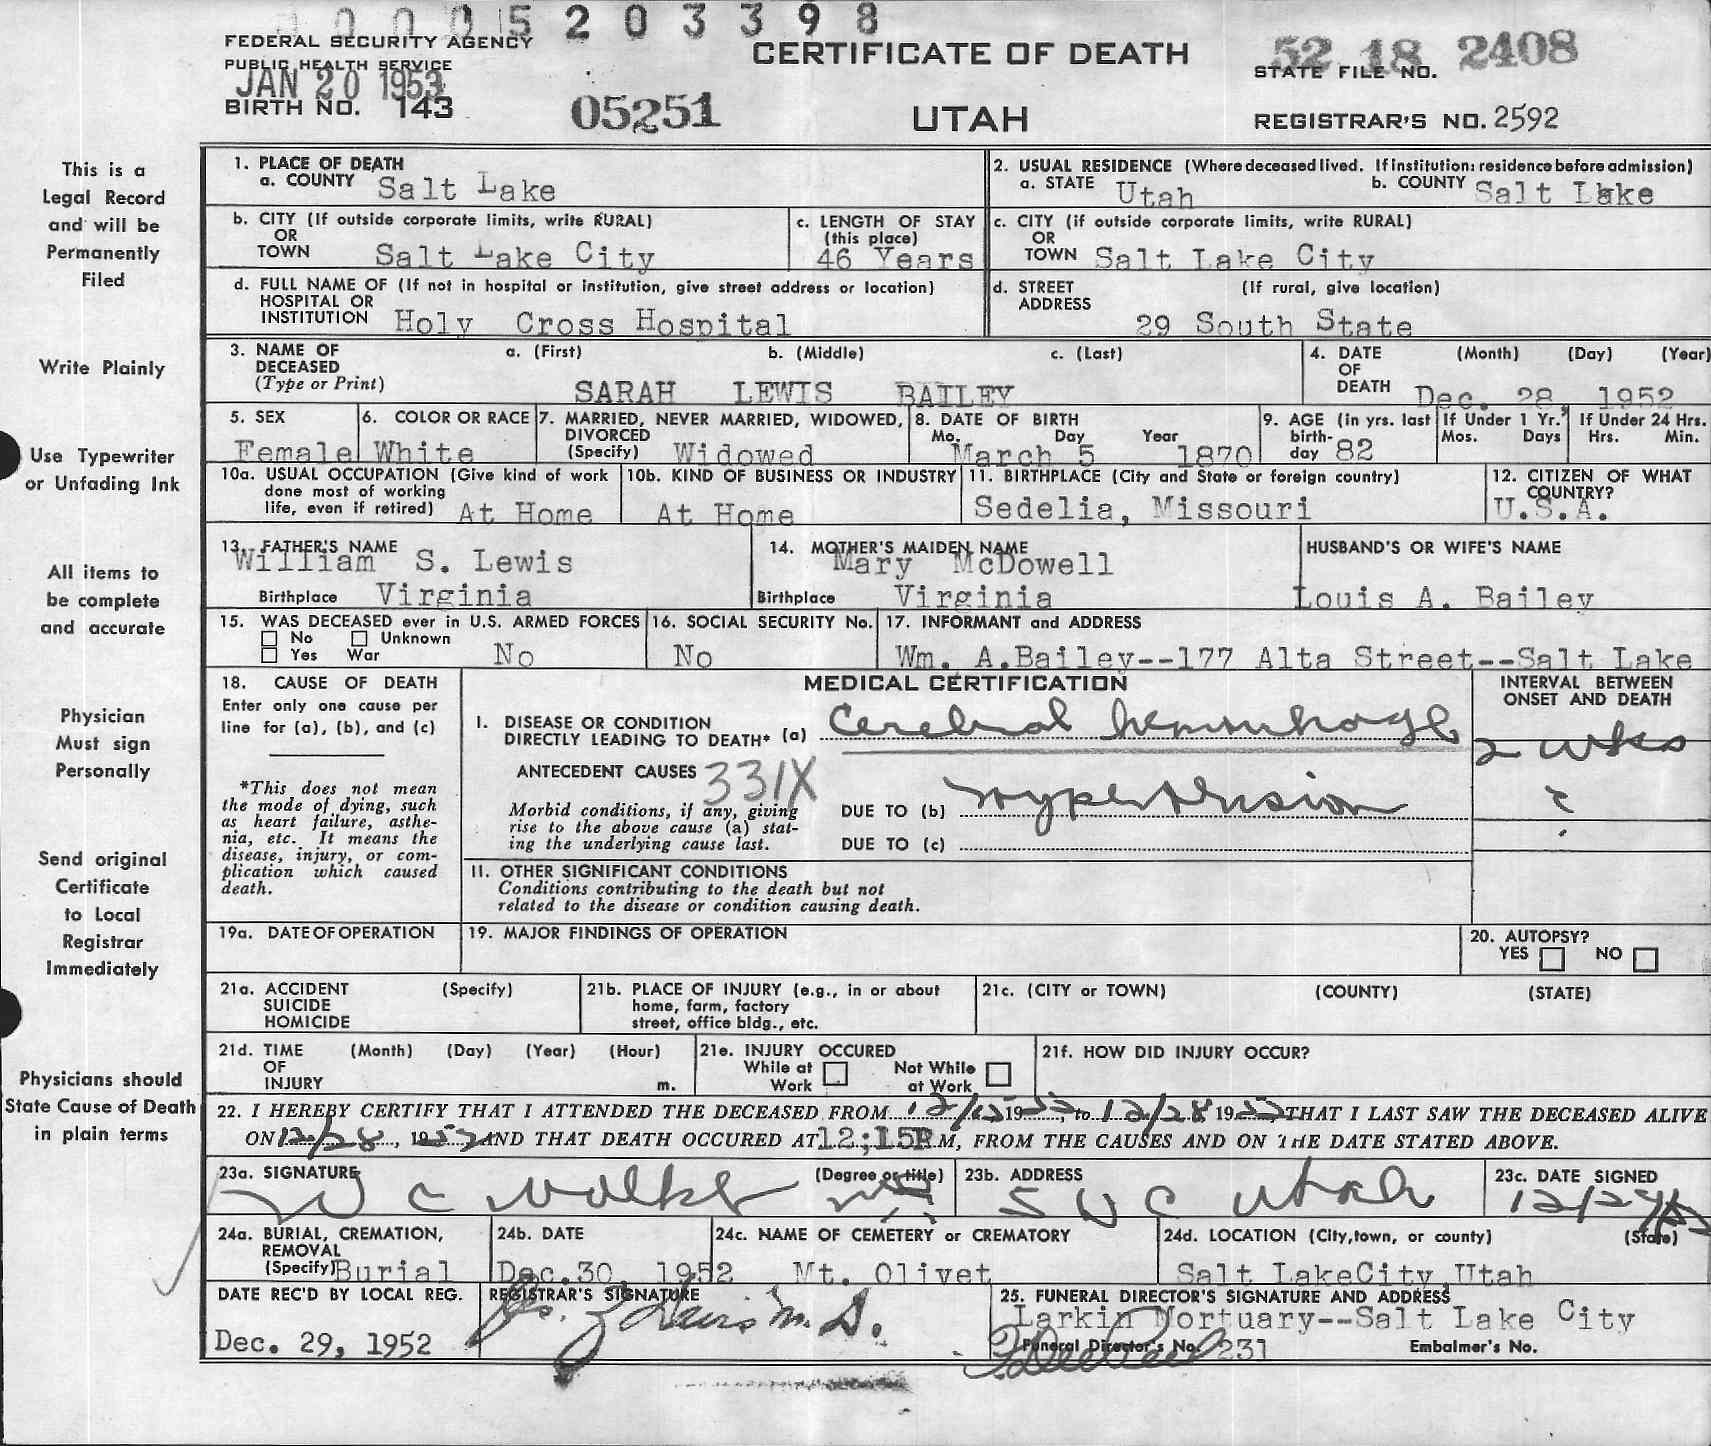 0 0 0 5 2 0 3 3 9 8
FEDERAL SECURITY AGENCY
PUBLIC HEALTH SERVICE
JAN 20 1953
BIRTH NO. 143
05251
CERTIFICATE OF DEATH
UTAH
52 18 2408
STATE FILE NO.
REGISTRAR'S NO. 2592
This is a
Legal Record
and will be
Permanently
Filed
Write Plainly
Use Typewriter
or Unfading Ink
All items to
be complete
and accurate
Physician
Must sign
Personally
Send original
Certificate
to Local
Registrar
Immediately
Physicians should
State Cause of Death
in plain terms
1. PLACE OF DEATH
a. COUNTY Salt Lake
2. USUAL RESIDENCE (Where deceased lived. If institution: residence before admission)
a. STATE Utah b. COUNTY Salt Lake
b. CITY (If outside corporate limits, write RURAL)
OR
TOWN Salt Lake City
c. LENGTH OF STAY
(this place)
46 Years
c. CITY (if outside corporate limits, write RURAL)
OR
TOWN Salt Lake City
d. FULL NAME OF (If not in hospital or institution, give street address or location)
HOSPITAL OR
INSTITUTION Holy Cross Hospital
d. STREET (If rural, give location)
ADDRESS
29 South State
3. NAME OF a. (First) b. (Middle) c. (Last)
DECEASED
(Type or Print) SARAH LEWIS BAILEY
4. DATE (Month) (Day) (Year)
OF
DEATH Dec. 28, 1952
5. SEX
Female
6. COLOR OR RACE
White
7. MARRIED, NEVER MARRIED, WIDOWED,
DIVORCED
(Specify) Widowed
8. DATE OF BIRTH
Mo. Day Year
March 5 1870
9. AGE (in yrs. last
birth-
day 82
If Under 1 Yr.
Mos. Days
If Under 24 Hrs.
Hrs. Min.
10a. USUAL OCCUPATION (Give kind of work
done most of working
life, even if retired) At Home
10b. KIND OF BUSINESS OR INDUSTRY
At Home
11. BIRTHPLACE (City and State or foreign country)
Sedelia, Missouri
12. CITIZEN OF WHAT
COUNTRY?
U.S.A.
13. FATHER'S NAME
William S. Lewis
Birthplace Virginia
14. MOTHER'S MAIDEN NAME
Mary McDowell
Birthplace Virginia
HUSBAND'S OR WIFE'S NAME
Louis A. Bailey
15. WAS DECEASED ever in U.S. ARMED FORCES
No Unknown
Yes War No
16. SOCIAL SECURITY No.
No
17. INFORMANT and ADDRESS
Wm. A.Bailey--177 Alta Street--Salt Lake
18. CAUSE OF DEATH
Enter only one cause per
line for (a), (b), and (c)
*This does not mean
the mode of dying, such
as heart failure, asthe-
nia, etc. It means the
disease, injury, or com-
plication which caused
death.
MEDICAL CERTIFICATION
INTERVAL BETWEEN
ONSET AND DEATH
I. DISEASE OR CONDITION
DIRECTLY LEADING TO DEATH* (a) Cerebral hemorrhage
2 wks
ANTECEDENT CAUSES 331X
Morbid conditions, if any, giving
rise to the above cause (a) stat-
ing the underlying cause last.
DUE TO (b) Hypertension
?
DUE TO (c)
II. OTHER SIGNIFICANT CONDITIONS
Conditions contributing to the death but not
related to the disease or condition causing death.
19a. DATE OF OPERATION
19. MAJOR FINDINGS OF OPERATION
20. AUTOPSY?
YES NO
21a. ACCIDENT (Specify)
SUICIDE
HOMICIDE
21b. PLACE OF INJURY (e.g., in or about
home, farm, factory
street, office bldg., etc.
21c. (CITY or TOWN) (COUNTY) (STATE)
21d. TIME (Month) (Day) (Year) (Hour)
OF
INJURY m.
21e. INJURY OCCURED
While at Not While
Work at Work
21f. HOW DID INJURY OCCUR?
22. I HEREBY CERTIFY THAT I ATTENDED THE DECEASED FROM 12/15 1952, to 12/28 1952, THAT I LAST SAW THE DECEASED ALIVE
ON 12/28, 1952 AND THAT DEATH OCCURED AT 12;15P.M, FROM THE CAUSES AND ON THE DATE STATED ABOVE.
23a. SIGNATURE (Degree or title)
W C Walker MD
23b. ADDRESS
S L C Utah
23c. DATE SIGNED
12/29/52
24a. BURIAL, CREMATION,
REMOVAL
(Specify) Burial
24b. DATE
Dec.30, 1952
24c. NAME OF CEMETERY or CREMATORY
Mt. Olivet
24d. LOCATION (City,town, or county) (State)
Salt LakeCity,Utah
DATE REC'D BY LOCAL REG.
Dec. 29, 1952
REGISTRAR'S SIGNATURE
M.D.
25. FUNERAL DIRECTOR'S SIGNATURE AND ADDRESS
Larkin Mortuary--Salt Lake City
Funeral Director's No. 231 Embalmer's No.